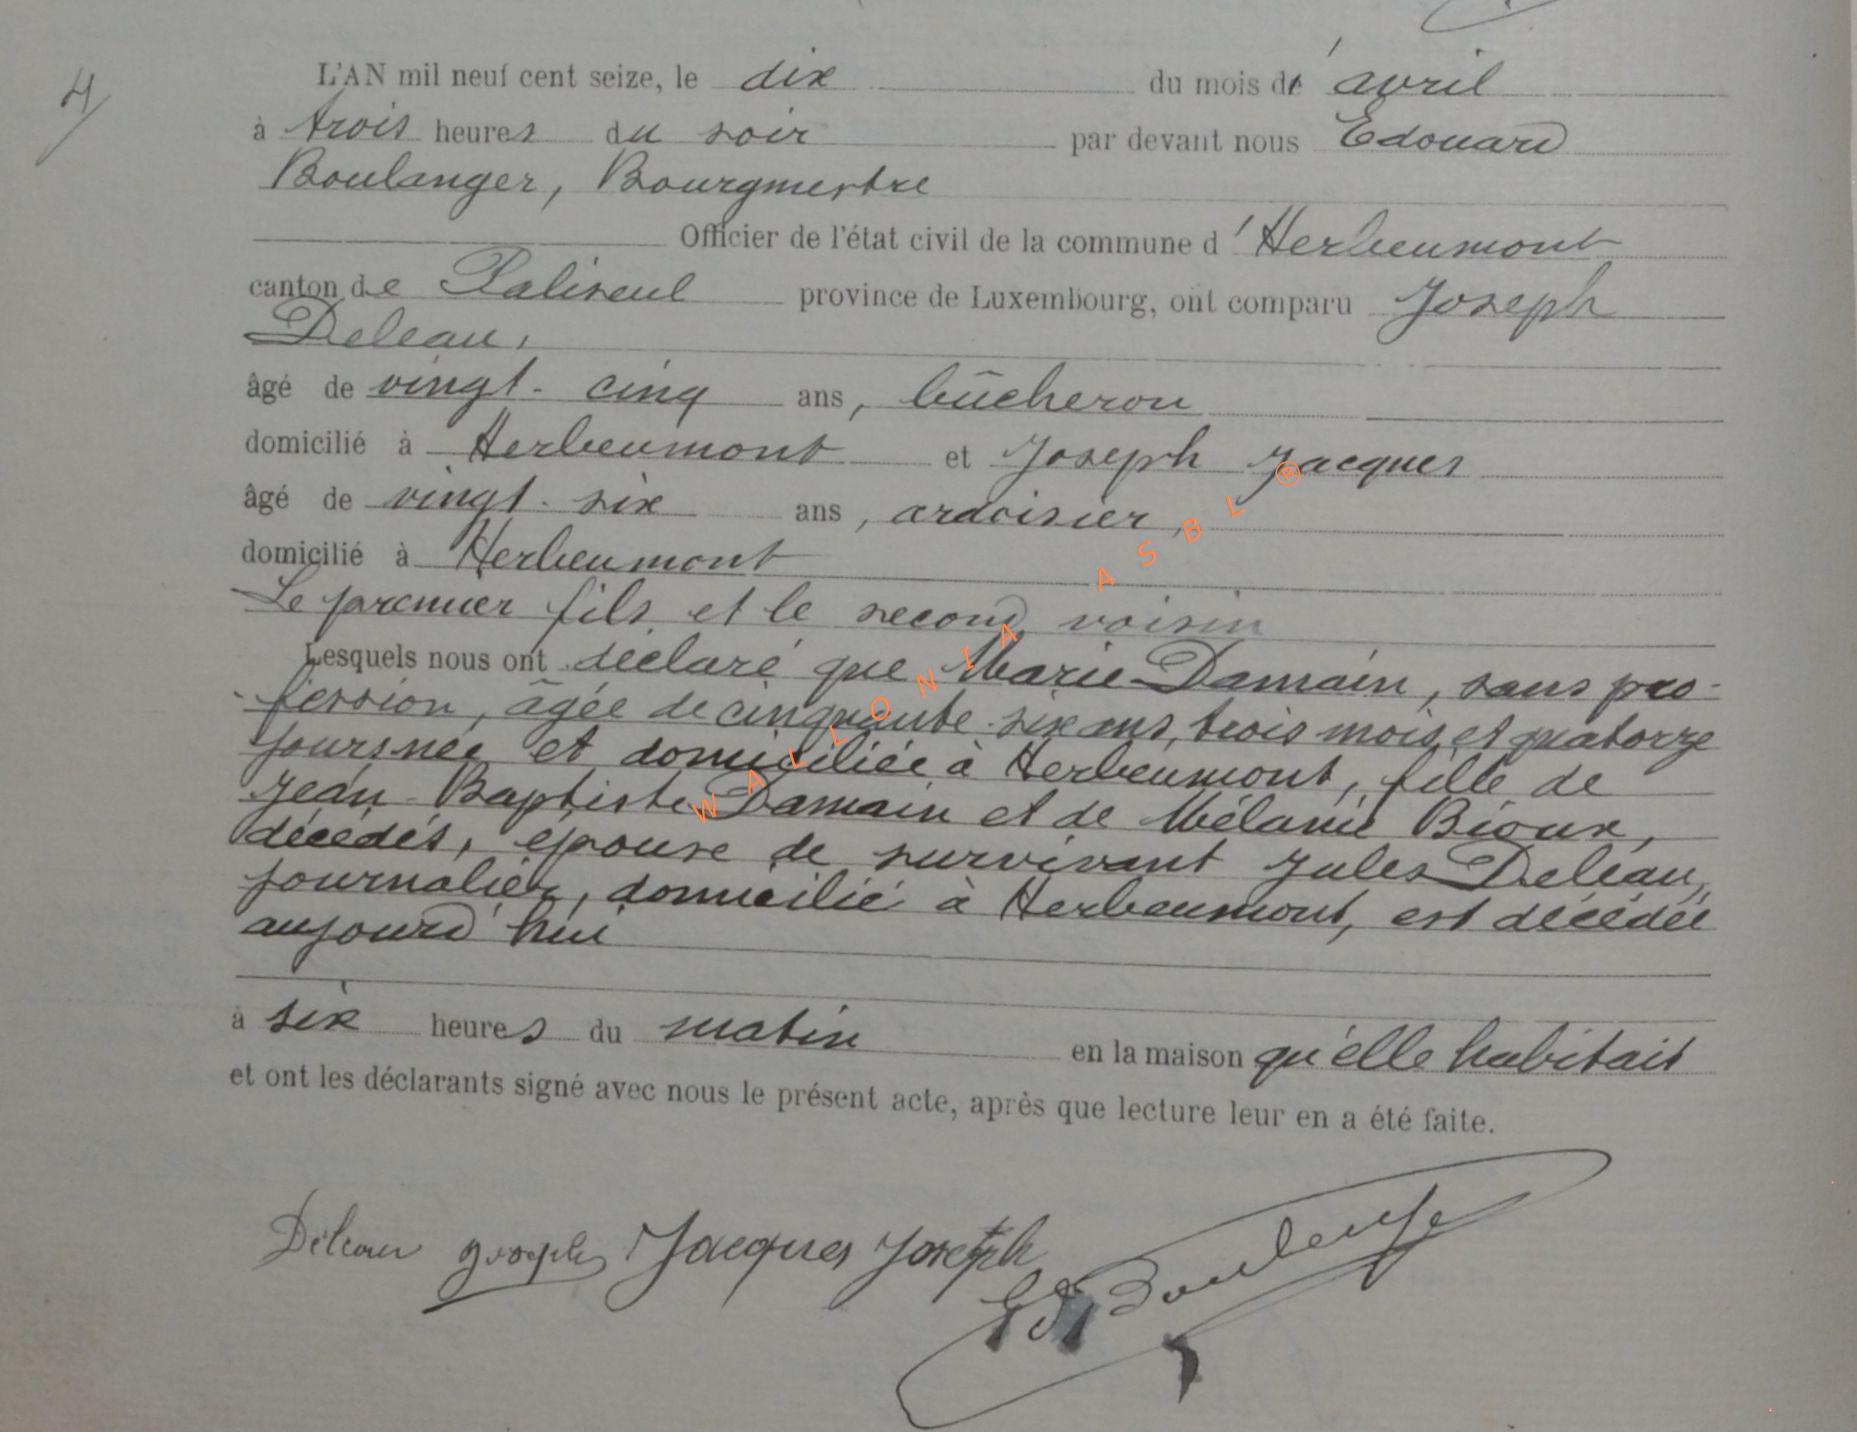 4
L'AN mil neuf cent seize, le dix du mois d' avril
à trois heures du soir par devant nous Edouard
Boulanger, Bourgmestre
Officier de l'état civil de la commune d'Herbeumont
canton de Paliseul province de Luxembourg, ont comparu Joseph
Deleau,
âgé de vingt-cinq ans, bûcheron
domicilié à Herbeumont et Joseph Jacques
âgé de vingt-six ans, ardoisier,
domicilié à Herbeumont
Le premier fils et le second voisin
Lesquels nous ont déclaré que Marie Damain, sans pro-
fession, âgée de cinquante-six ans, trois mois et quatorze
jours née et domiciliée à Herbeumont, fille de
Jean-Baptiste Damain et de Mélanie Bioux,
décédés, épouse de survivant Jules Deleau,
journalier, domicilié à Herbeumont, est décédée
aujourd'hui
à six heures du matin en la maison qu'elle habitait
et ont les déclarants signé avec nous le présent acte, après que lecture leur en a été faite.
Déleau Joseph Jacques Joseph
Ed Boulanger
WALLONIA ASBL ®